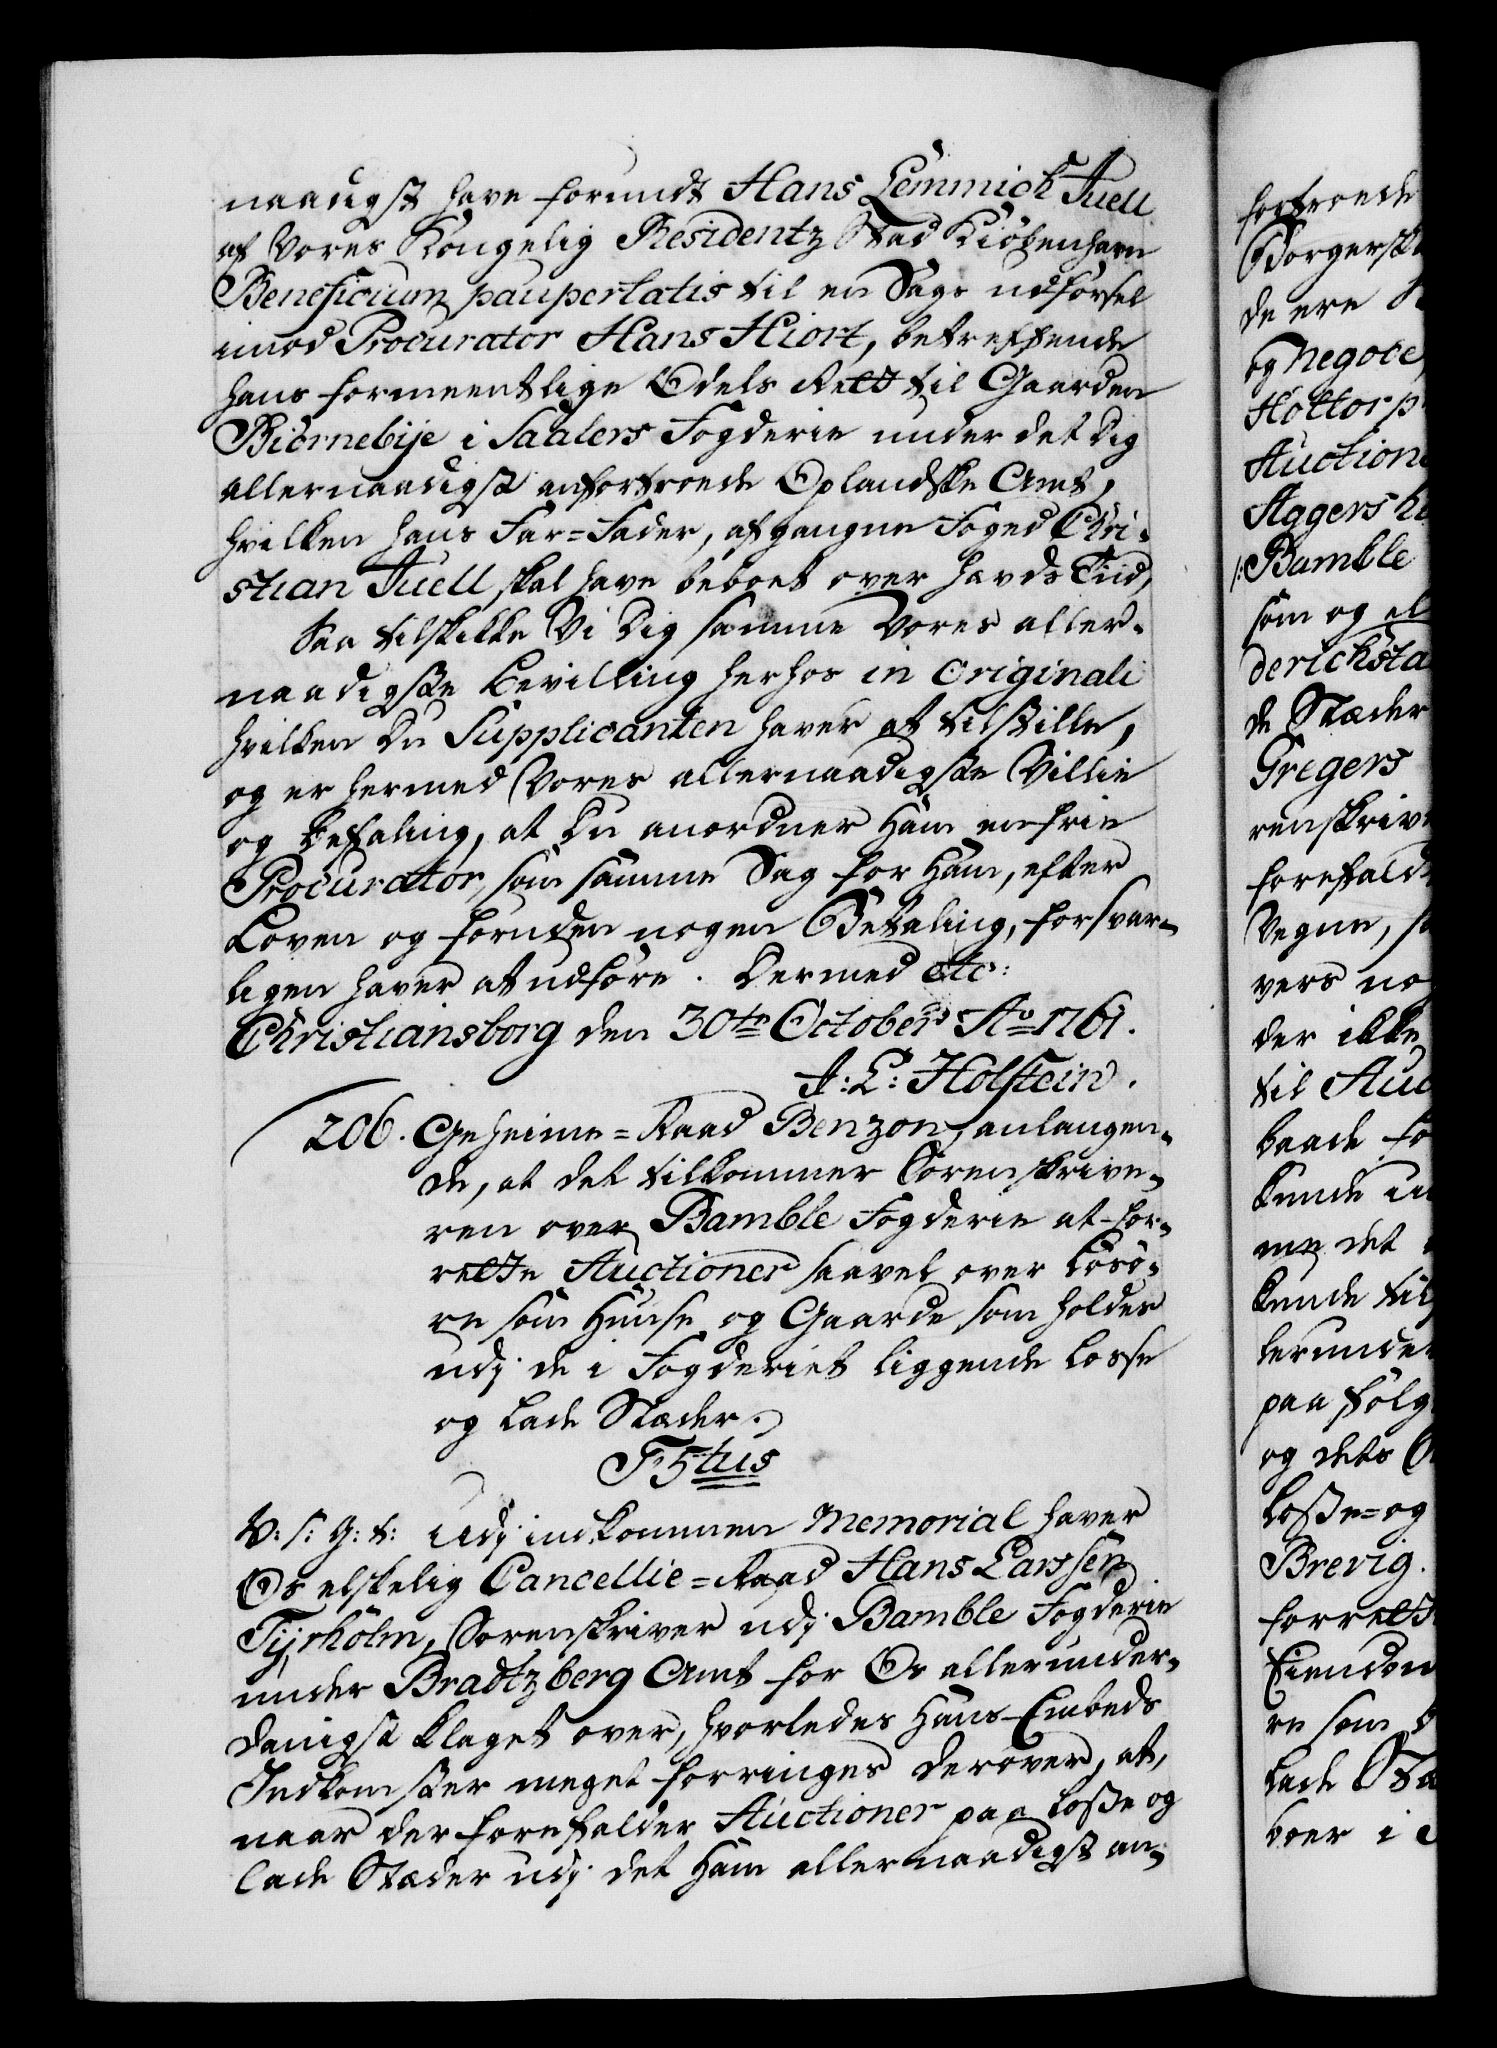 naadigst have forundt Hans Lemmich Juell
af Vores Kongelig Residentz Stad Kiøbenhavn
Beneficium paupertatis til en Sags udførsel
imod Procurator Hans Hiort, betreffende
hans formeentlige Odels Rett til Gaarden
Biørnebije i Saalers Fogderie under det dig
allernaadigst anfortroede Oplandske Amt,
hvilken hans Far-Fader, afgangne Foged Chri-
stian Juell skal have beboet over hævds Tiid,
Saa tilskikke Vi dig samme Vores aller-
naadigste Bevilling herhos in originali
hvilken du Supplicanten haver at tilstille,
og er hermed Vores allernaadigste Villie
og Befaling, at du anordner Ham en frie
Procurator, som samme Sag for Ham, efter
Loven og foruden nogen Betaling, forsvar-
ligen haver at udføre. Dermed etc:
Christiansborg den 30te October Ao 1761.
J: L: Holstein.
206. Geheime-Raad Benzon, anlangen-
de, at det tilkommer Sorenskrive-
ren over Bamble Fogderie at for-
rette Auctioner saavel over Løsø-
re som Huuse og Gaarde som holdes
udj de i Fogderiet liggende Losse
og Lade Stæder.
F5tus
V: S: G: T: Udj indkommen Memorial haver
Os elskelig Cancellie-Raad Hans Larssen
Tijrholm, Sorenskriver udj Bamble Fogderie
under Bradtzberg Amt for Os allerunder-
danigst klaget over, hvorledes Hans Embeds
Indkomster meget forringes derover, at,
naar der forefalder Auctioner paa Losse og
Lade Stæder udj det Ham allernaadigst an-
fortroede
Borgersk
de ere
og Negoce
Holtorp
Auction
Aggers
Bamble
som og
derichsta
de Stæder
Gregers
renskriv
forefald
Vegne,
vers no
der ikke
til Auc
baade fo
Kunde
me det
Kunde til
herunder
paa følg
og dets
Losse- og
Brevig.
forrett
Eiendom
re som
Lade Sta
boer i